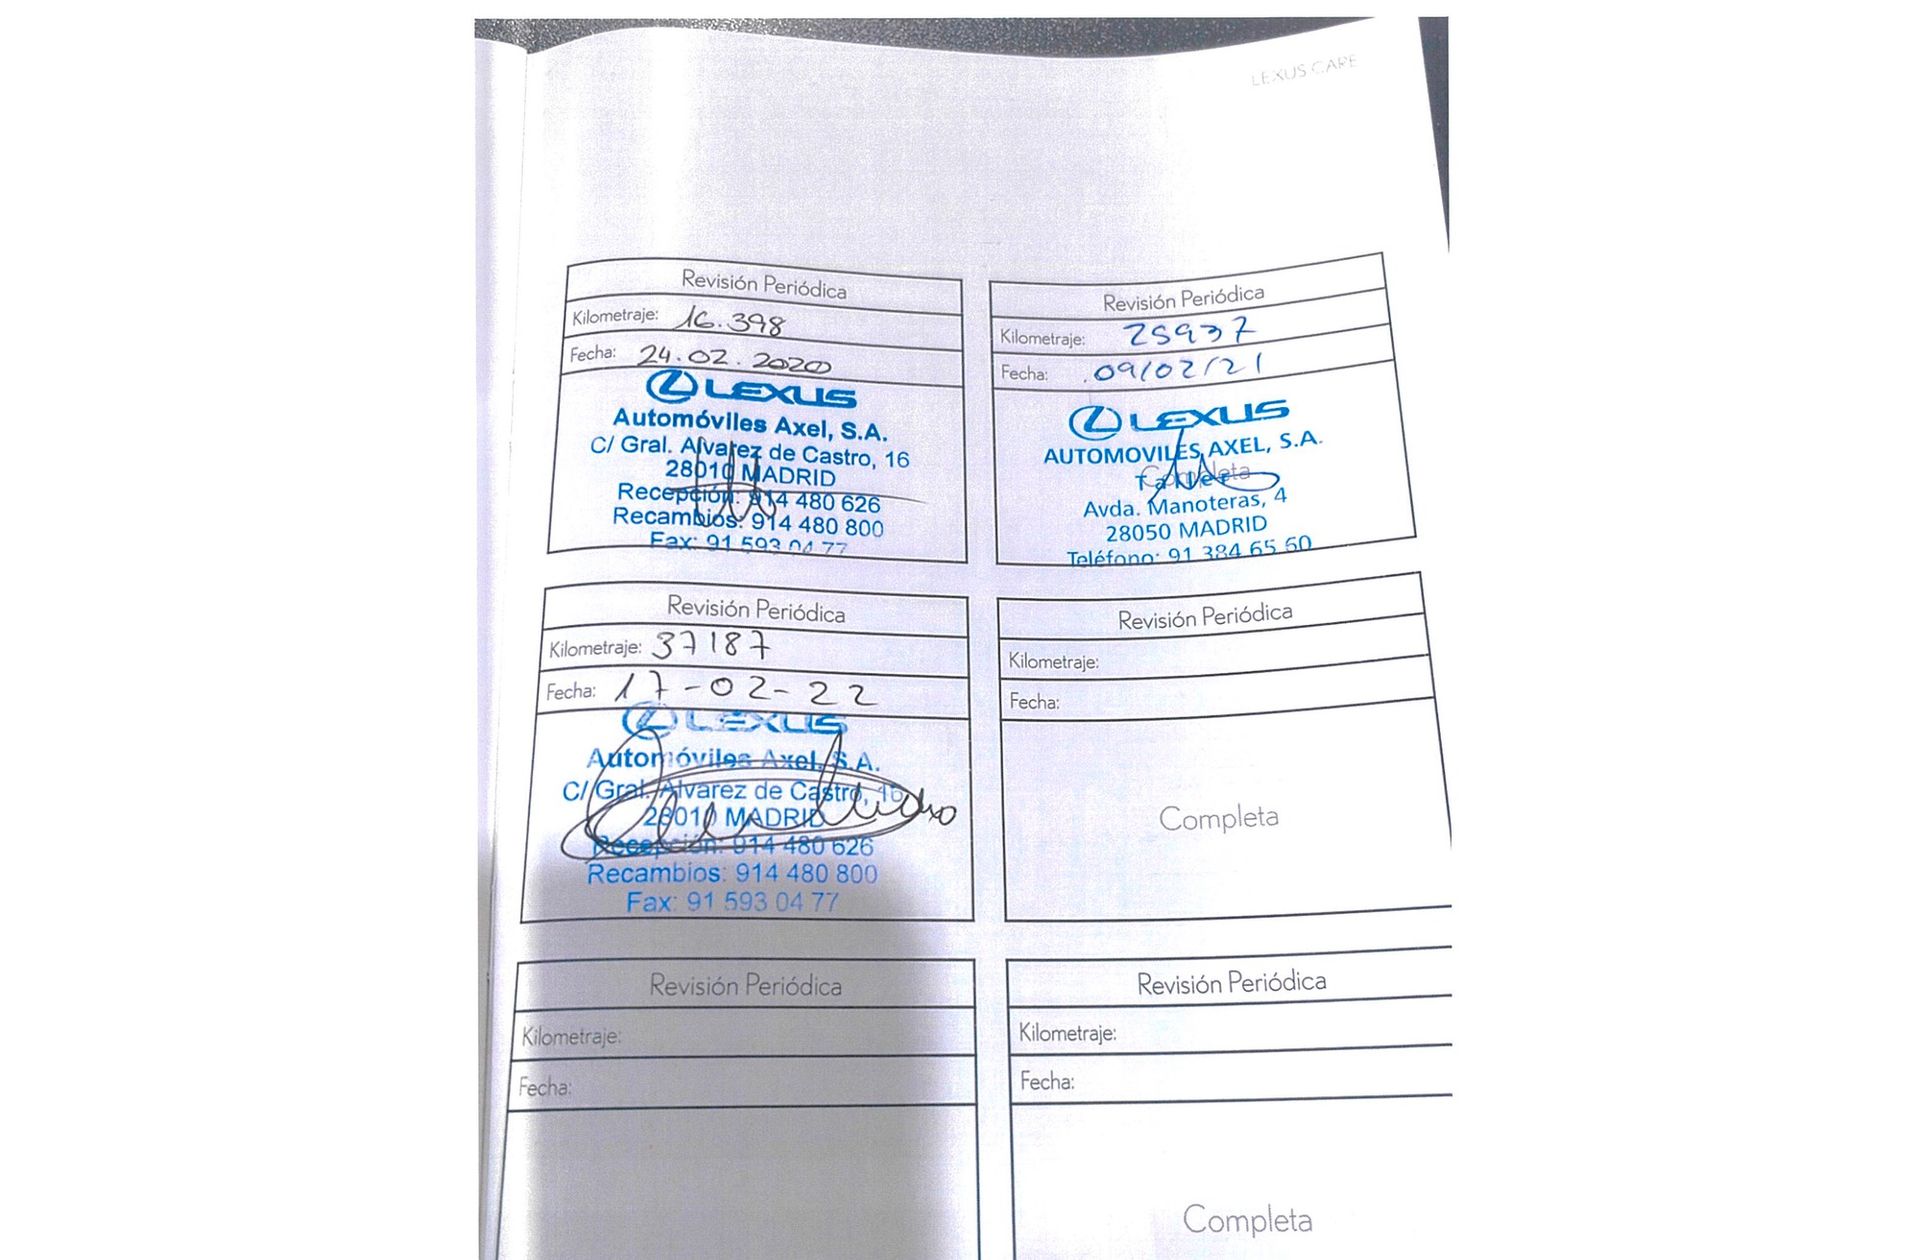 LEXUS CARE
Revisión Periódica
Kilometraje: 16.398
Fecha: 24.02.2020
LEXUS
Automóviles Axel, S.A.
C/ Gral. Alvarez de Castro, 16
28010 MADRID
Recepción: 914 480 626
Recambios: 914 480 800
Fax: 91 593 04 77
Revisión Periódica
Kilometraje: 25937
Fecha: 09/02/21
LEXUS
AUTOMOVILES AXEL, S.A.
Completa
Taller
Avda. Manoteras, 4
28050 MADRID
Teléfono: 91 384 65 60
Revisión Periódica
Kilometraje: 37187
Fecha: 17-02-22
LEXUS
Automóviles Axel, S.A.
C/ Gral. Alvarez de Castro, 16
28010 MADRID
Recepción: 914 480 626
Recambios: 914 480 800
Fax: 91 593 04 77
Revisión Periódica
Kilometraje:
Fecha:
Completa
Revisión Periódica
Kilometraje:
Fecha:
Revisión Periódica
Kilometraje:
Fecha:
Completa